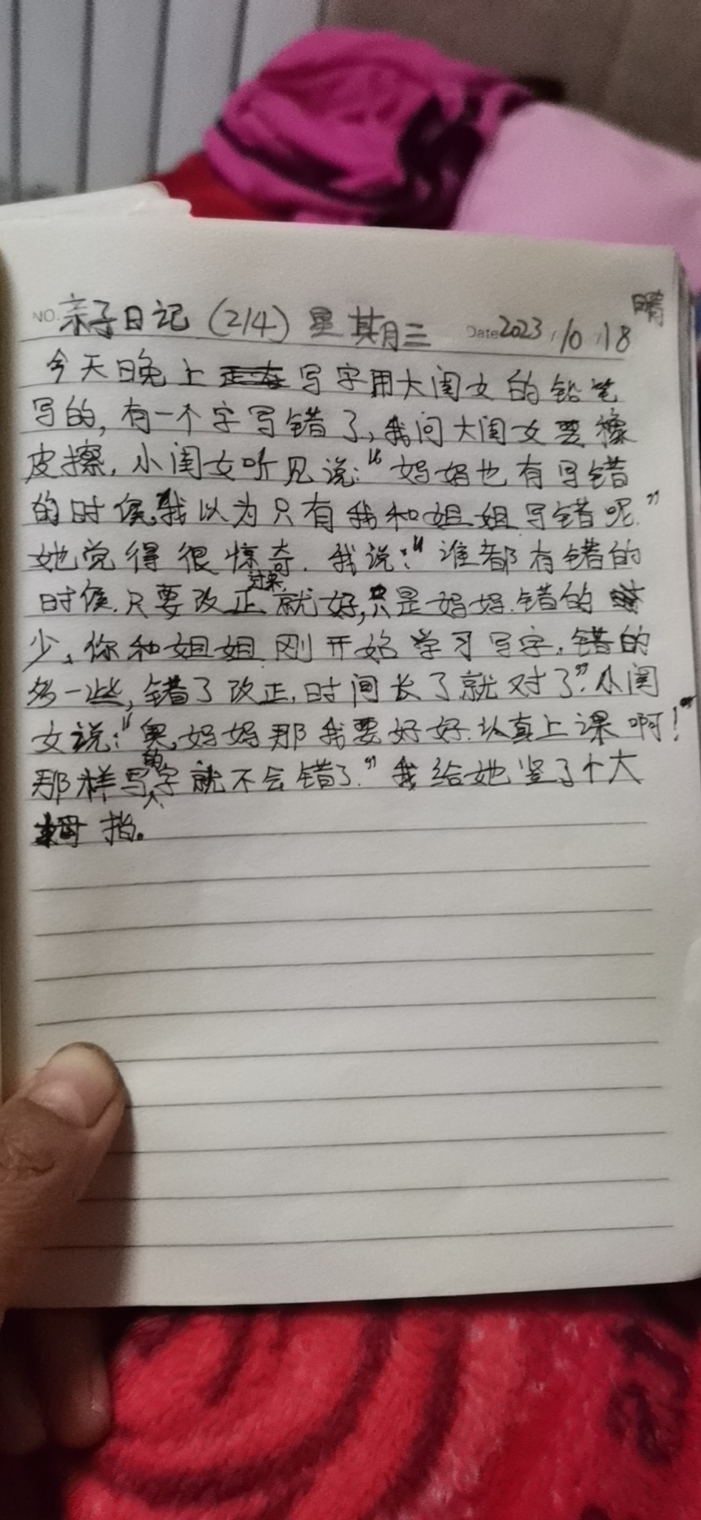 NO. 亲子日记 (214) 星期三 Date 2023 / 10 / 18 晴
今天晚上写字用大闺女的铅笔
写的, 有一个字写错了, 我问大闺女要橡
皮擦, 小闺女听见说:“妈妈也有写错
的时候, 我以为只有我和姐姐写错呢.”
她觉得很惊奇. 我说:“谁都有错的
时候. 只要改正过来就好, 只是妈妈. 错的
少, 你和姐姐刚开始学习写字. 错的
多一些, 错了改正, 时间长了就对了”. 小闺
女说:“奥, 妈妈那我要好好. 认真上课啊!”
那样写的字就不会错了.” 我给她竖了个大
拇指。